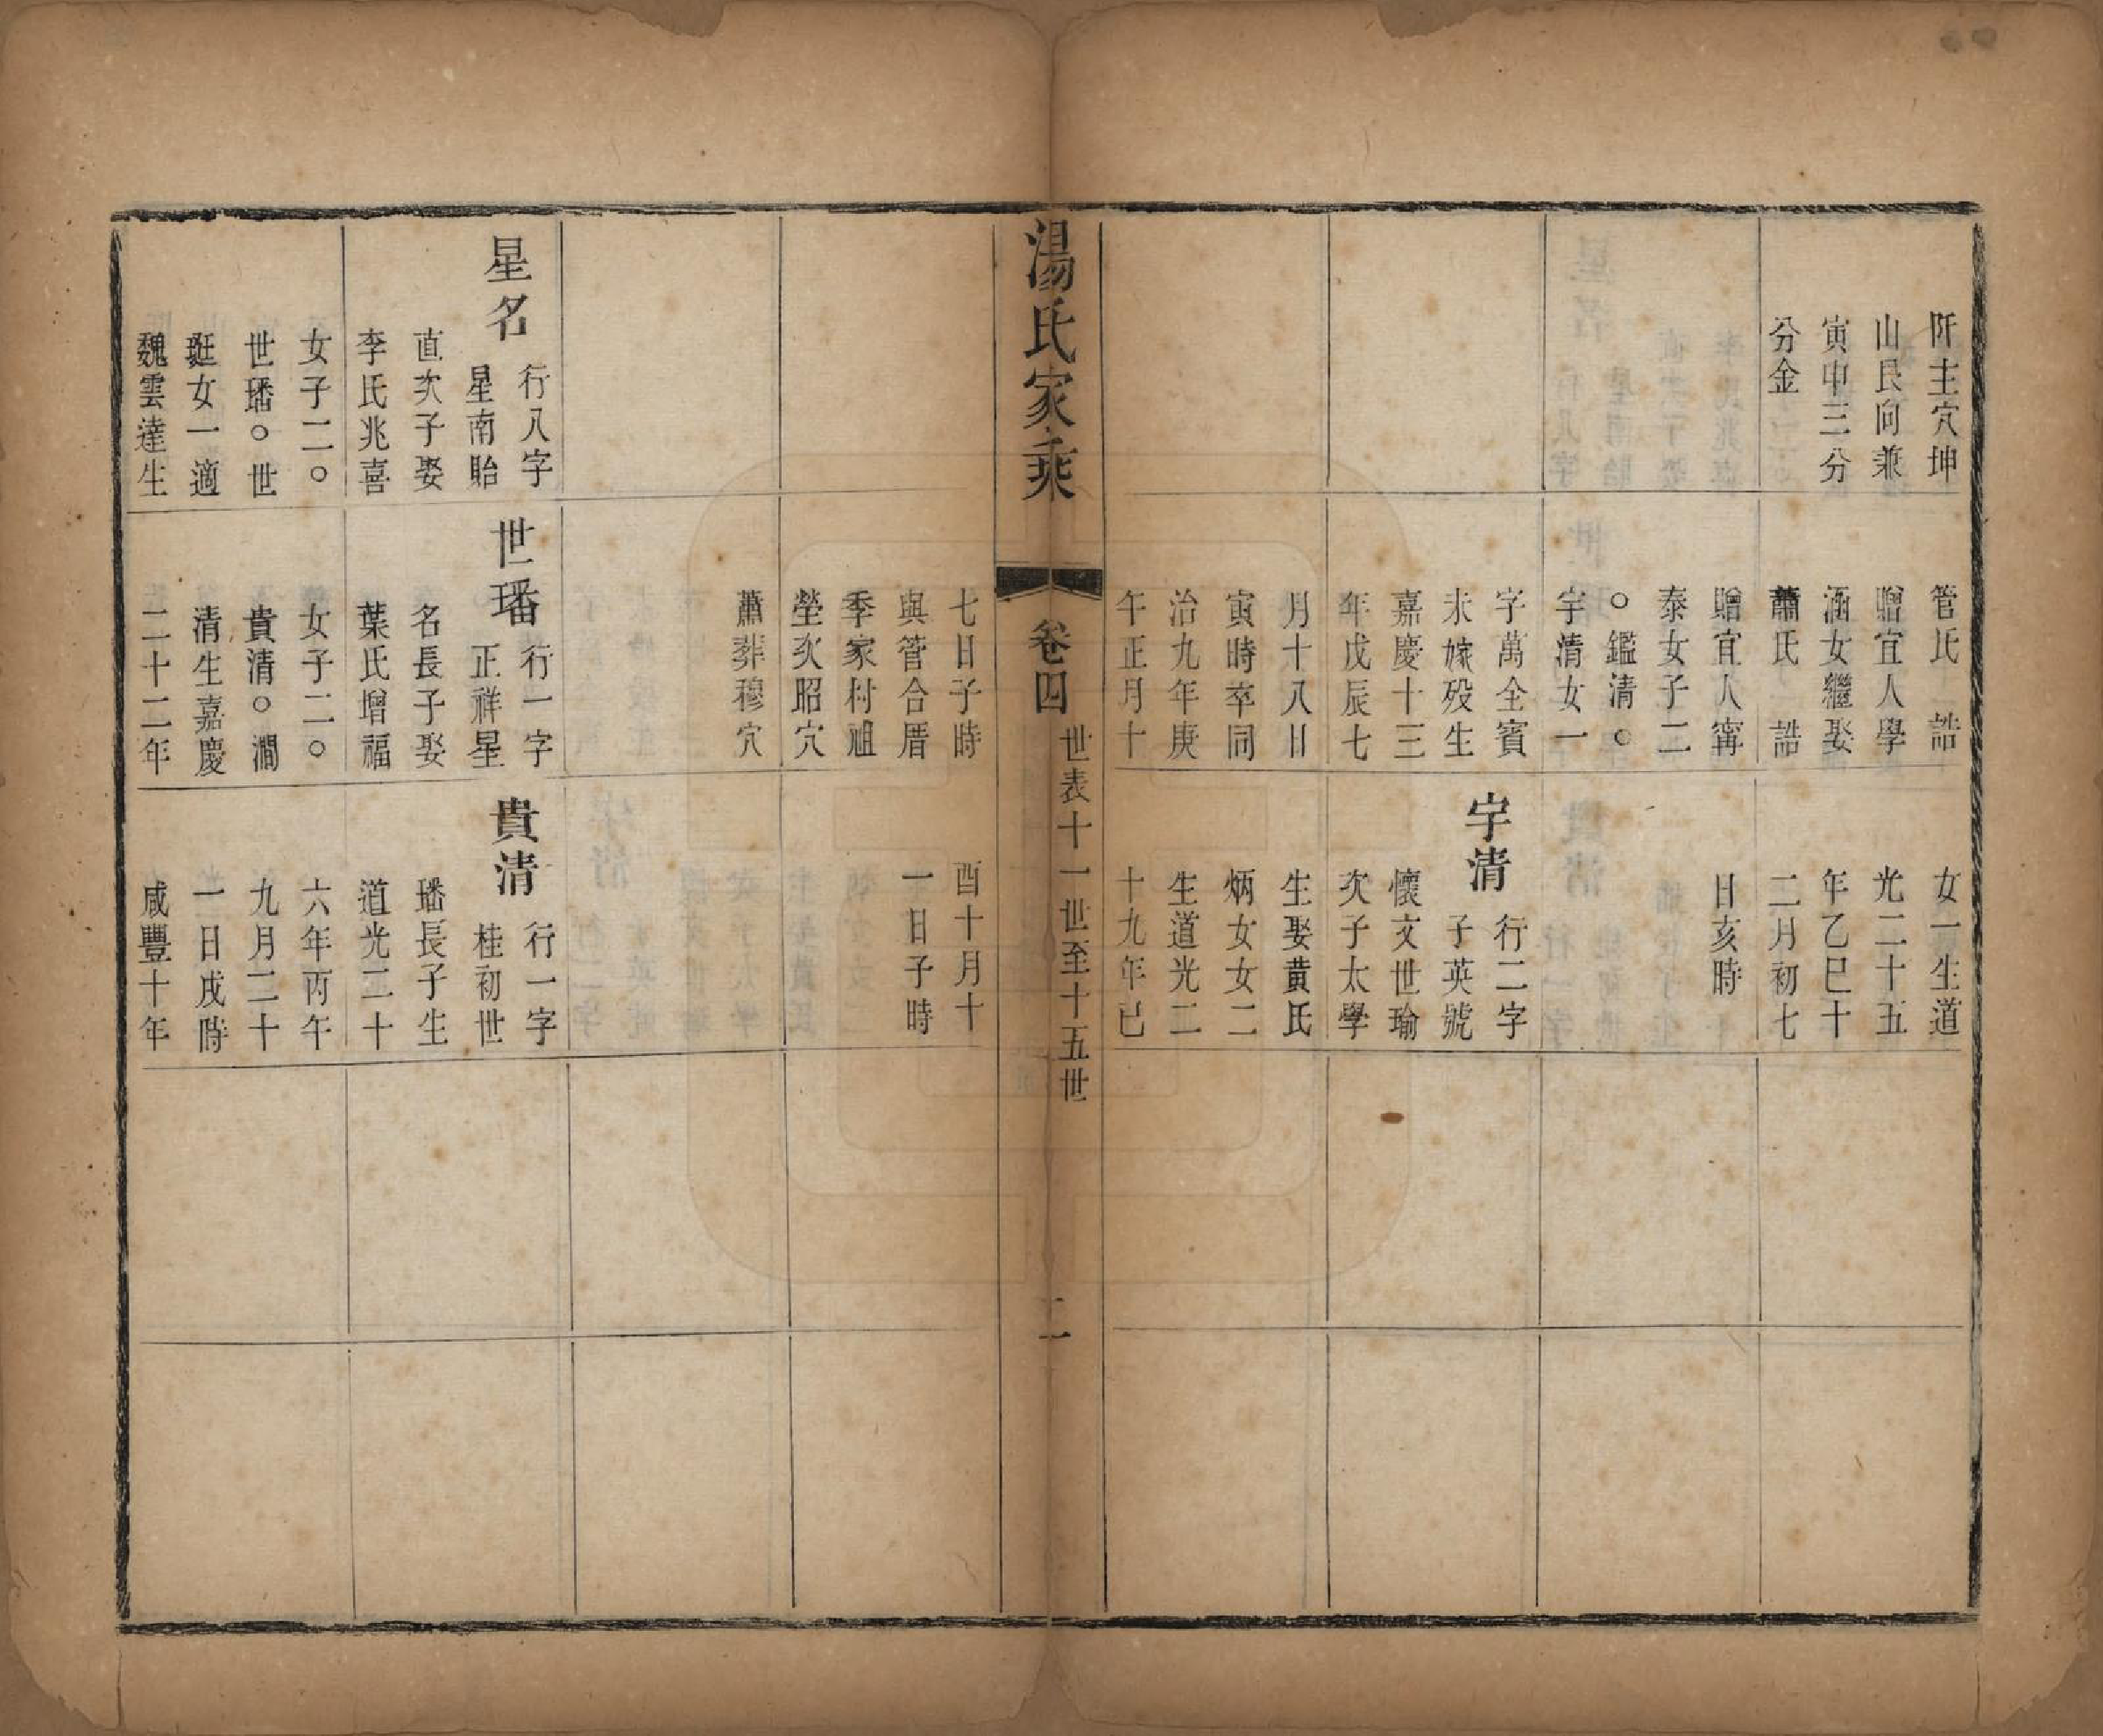 阡主穴坤
山艮向兼
寅申三分
分金
管氏　誥
贈宜人學
涵女繼娶
蕭氏　誥
贈宜人甯
泰女子二
○鑑清○
宇清女一
字萬全賓
未嫁殁生
嘉慶十三
年戊辰七
月十八日
寅時卒同
治九年庚
午正月十
女一生道
光二十五
年乙巳十
二月初七
日亥時
宇清
行二字
子英號
懷文世瑜
次子太學
生娶黃氏
炳女女二
生道光二
十九年已
湯氏家乘
卷四
世表十一世至十五世
二
七日子時
與管合厝
季家村祖
塋次昭穴
蕭葬穆穴
酉十月十
一日子時
星名
行八字
星南貽
直次子娶
李氏兆喜
女子二○
世璠○世
珽女一適
魏雲達生
世璠
行一字
正祥星
名長子娶
葉氏增福
女子二○
貴清○澗
清生嘉慶
二十二年
貴清
行一字
桂初世
璠長子生
道光二十
六年丙午
九月二十
一日戌時
咸豐十年